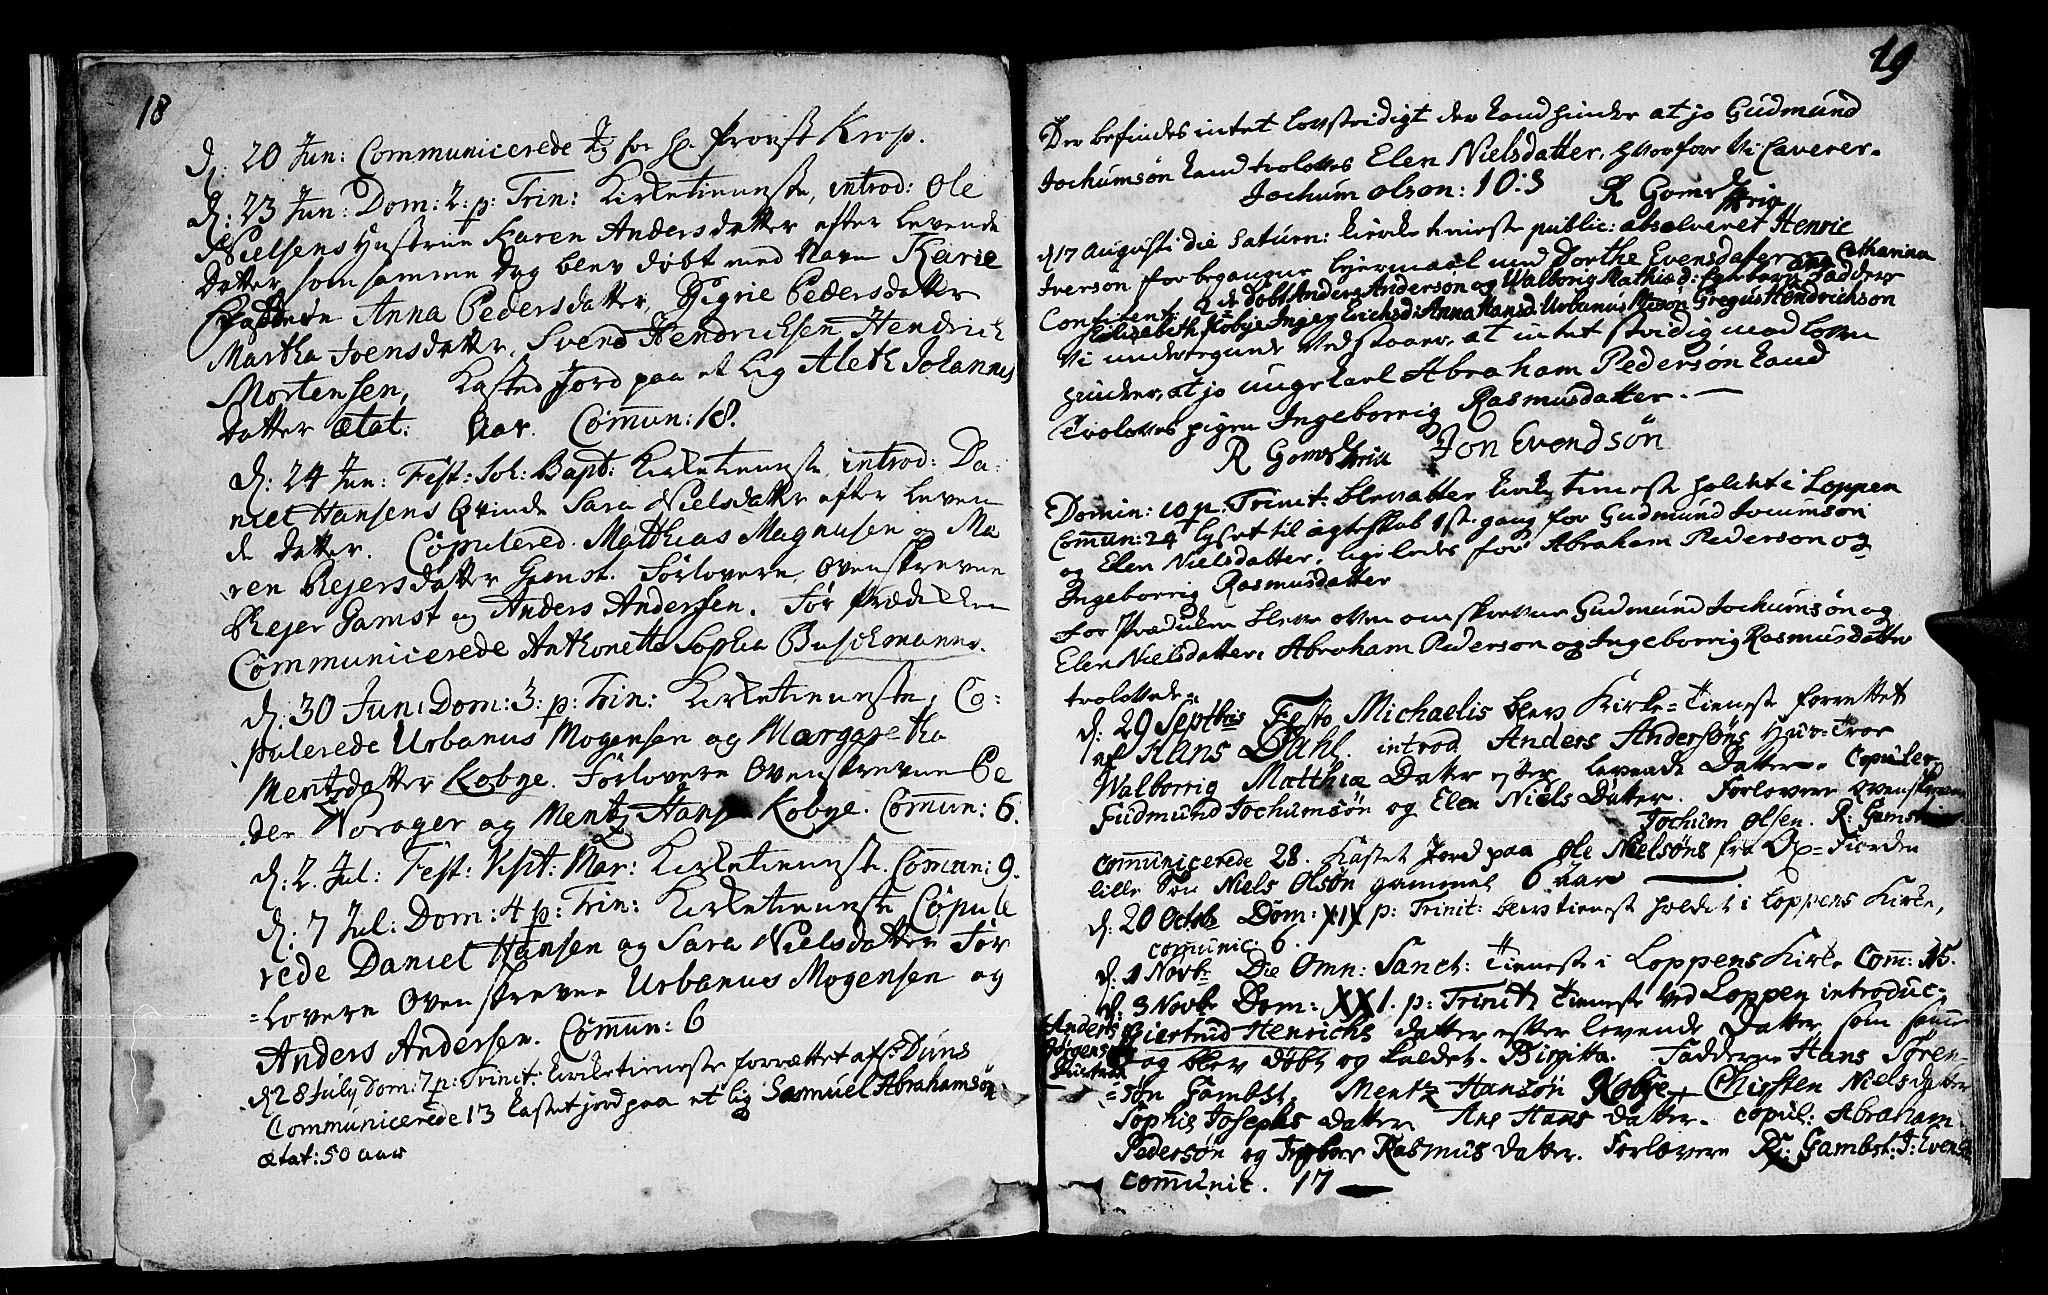 18
d: 20 Jun: Communicerede Jeg for Hr. Provst Krop.
d: 23 Jun: Dom: 2. p: Trin: Kirketieniste, introd: Ole
Nielsens Hustrue Karen Andersdatter efter levende
datter som samme dag blev døbt med Navn Karie
Fadderne Anna Pedersdatter, Sigrie Pedersdatter
Martha Joensdatter, Svend Hendrichsen Hendrich
Mortensen, Kasted Jord paa et lig Aleth Johannes
datter ætat: Aar. Com̄un: 18.
d: 24 Jun: Fest: Joh: Bapt: Kirketieniste, introd: Da-
niel Hansens Qvinde Sara Nielsdatter efter leven
de datter. Copulered Matthias Magnusen og Ma
ren Rejersdatter Gamst. Forlovere, Ovenskrevne
Rejer Gamst og Anders Andersen. Før Prædiken
Communicerede Anthonette Sophia Buschmanns.
d: 30 Jun: Dom: 3: p: Trin: Kirketieniste, Co:
pulerede Urbanus Mogensen og Margaretha
Mentsdatter Kobye. Forlovere Ovenskrevne Pe
der Norager og Mentz Hans Kobye. Com̄un: 6.
d: 2. Jul: Fest: Visit: Mar: Kirketieniste. Com̄un: 9.
d: 7 Jul: Dom: 4 p: Trin: Kirketieniste Copule
rede Daniel Hansen og Sara Nielsdatter For
=lovere Ovenskrevne Urbanus Mogensen og
Anders Andersen. Com̄un: 6
d 28 July Dom: 7 p: Trinit: Kirketieneste forrættet af Duns
Communicerede 13 kastet jord paa et lig Samuel Abrahamsøn
ætat: 50 aar
19
Der befindes intet lovstridigt der kand hindre at jo Gudmund
Jochumsøn kand troloves Elen Nielsdatter, hvorfore vi Caverer.
Jochum olson: I O: S R Gomst
d 17 Augusti die Saturn: kirke tieneste public: absolveret Henric
Iverson for begangne lejermaal med Dorthe Evensdater Catharina
Confitent: 9 de døbt Anders Anderson og Walborig Mathiæd: Fadderne
Elisabeth Kobye Inger Erichsd: Anna Hansd: Urbanus Gregus Hendrichson
Vi undertegnede Vedstaaer, at intet stridig mod loven
hindrer, at jo unge karl Abraham Pedersøn kand
Troloves pigen Ingeborrig Rasmusdatter. —
R Gomst Jon Evendsøn
Domin: 10 p. Trinit: blev atter kirke tieneste holdet i Loppen
Com̄un: 24 lyset til ægteskab 1ste gang for Gudmund Jocumson
og Elen Nielsdatter, ligeledes for Abraham Pederson og
Ingeborrig Rasmusdatter
for Prædicken bleve ovenomskrevne Gudmund Jochumsøn og
Elen Nielsdatter, Abraham Pederson og Ingeborrig Rasmusdatter
trolovede.
d: 29 Septbris Festo Michaelis blev Kirke=Tieneste forrettet
af Hans Dahl. introd. Anders Andersøns Hus=Troe
Walborrig Matthiæ Datter efter levende Datter. Copuler.
Gudmund Jochumsøn og Elen Niels Datter. Forlovere ovenskrevne
Jochum Olsen. R: Gamst
communicerede 28. Kastet Jord paa Ole Nielsøns fra Ox=Fiorden
lille Søn Niels Olsøn gammel 6 aar —
d: 20 Octob Dom: XIX p: Trinit: blev tienest holdet i Loppens Kirke,
communic: 6.
d: 1 Novbr Die Omn: Sanct: Tieneste i Loppens Kirke Com̄: 15.
d: 3 Novbr Dom: XXI. p: Trinit Tieneste ved Loppen introduc-
Anders
Jørgensøns
Hustrue
Giertrud Henrichs datter efter levende Datter som sam̄e
Dag blev døbt og kaldet. Birgitta. Fadderne Hans Søren-
=søn Gambst, Mentz Hansøn Kobye, Chirsten Nielsdatter
Sophie Josephs datter Ane Hans datter. copul: Abraham
Pedersøn og Ingbor Rasmus datter. Forlovere R: Gambst: J: Evens
communic. 17 —